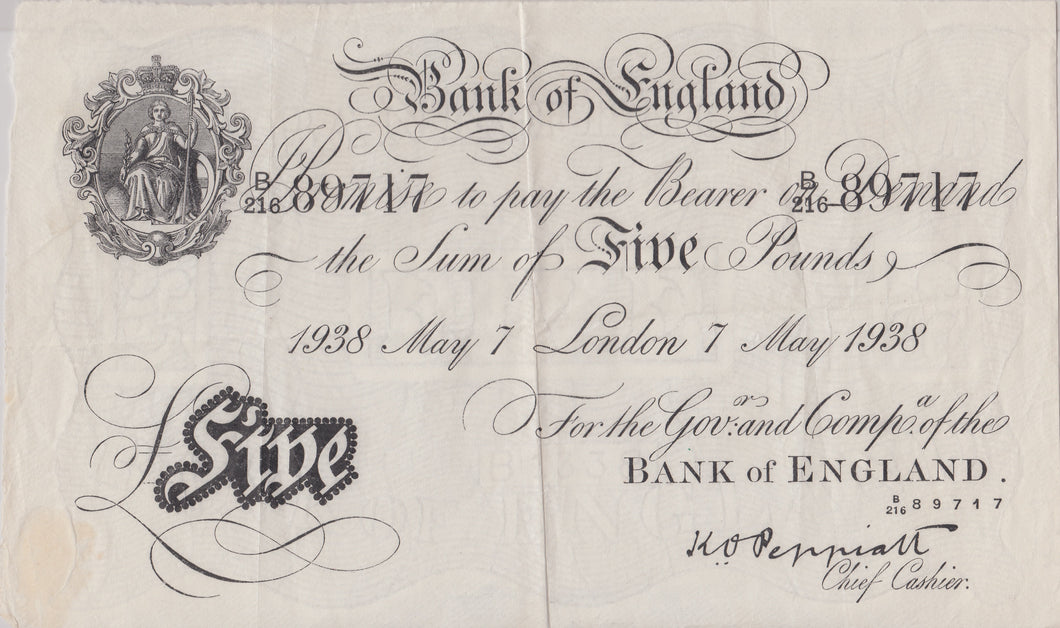 Bank of England
I Promise to pay the Bearer on Demand
B
216 89717
B
216 89717
the Sum of Five Pounds,
1938 May 7 London 7 May 1938
For the Govr. and Compa. of the
BANK of ENGLAND.
£Five
B
216 89717
K O Peppiatt
Chief Cashier.